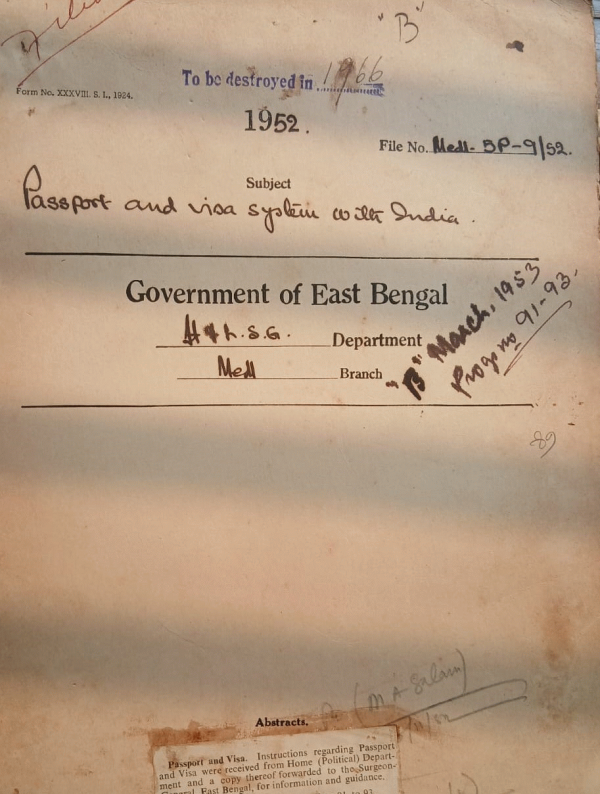 "B"
To be destroyed in 1966
Form No. XXXVIII. S. I., 1924.
1952.
File No. Medl. 5P-9/52.
Subject
Passport and visa system with India.
Government of East Bengal
H & L.S.G. Department
Medl Branch
"B" March, 1953
Progs no 91-93.
89
(M A Salam)
Abstracts.
Passport and Visa. Instructions regarding Passport
and Visa were received from Home (Political) Depart-
ment and a copy thereof forwarded to the Surgeon-
General, East Bengal, for information and guidance.